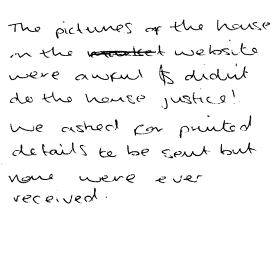 The pictures of the house
on the website
were awful & didn't
do the house justice!
We asked for printed
details to be sent but
none were ever
received.